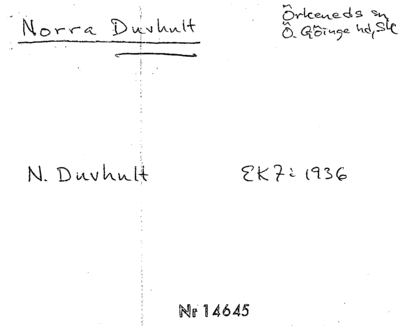 Norra Duvhult
Örkeneds sn,
Ö. Göinge hd, Sk
N. Duvhult
EK7: 1936
Nr 14645